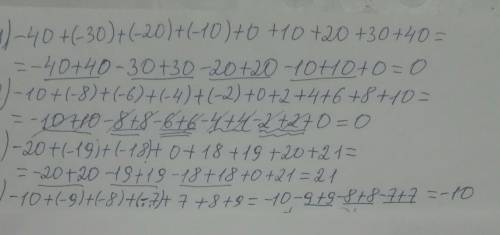 ) -40 + (-30) + (-20) + (-10) + 0 + 10 + 20 + 30 + 40 =
= -40+40 - 30+30 - 20+20 - 10+10 + 0 = 0
) -10 + (-8) + (-6) + (-4) + (-2) + 0 + 2 + 4 + 6 + 8 + 10 =
= -10+10 - 8+8 - 6+6 - 4+4 - 2+2 + 0 = 0
) -20 + (-19) + (-18) + 0 + 18 + 19 + 20 + 21 =
= -20+20 - 19+19 - 18+18 + 0 + 21 = 21
) -10 + (-9) + (-8) + (-7) + 7 + 8 + 9 = -10 - 9+9 - 8+8 - 7+7 = -10